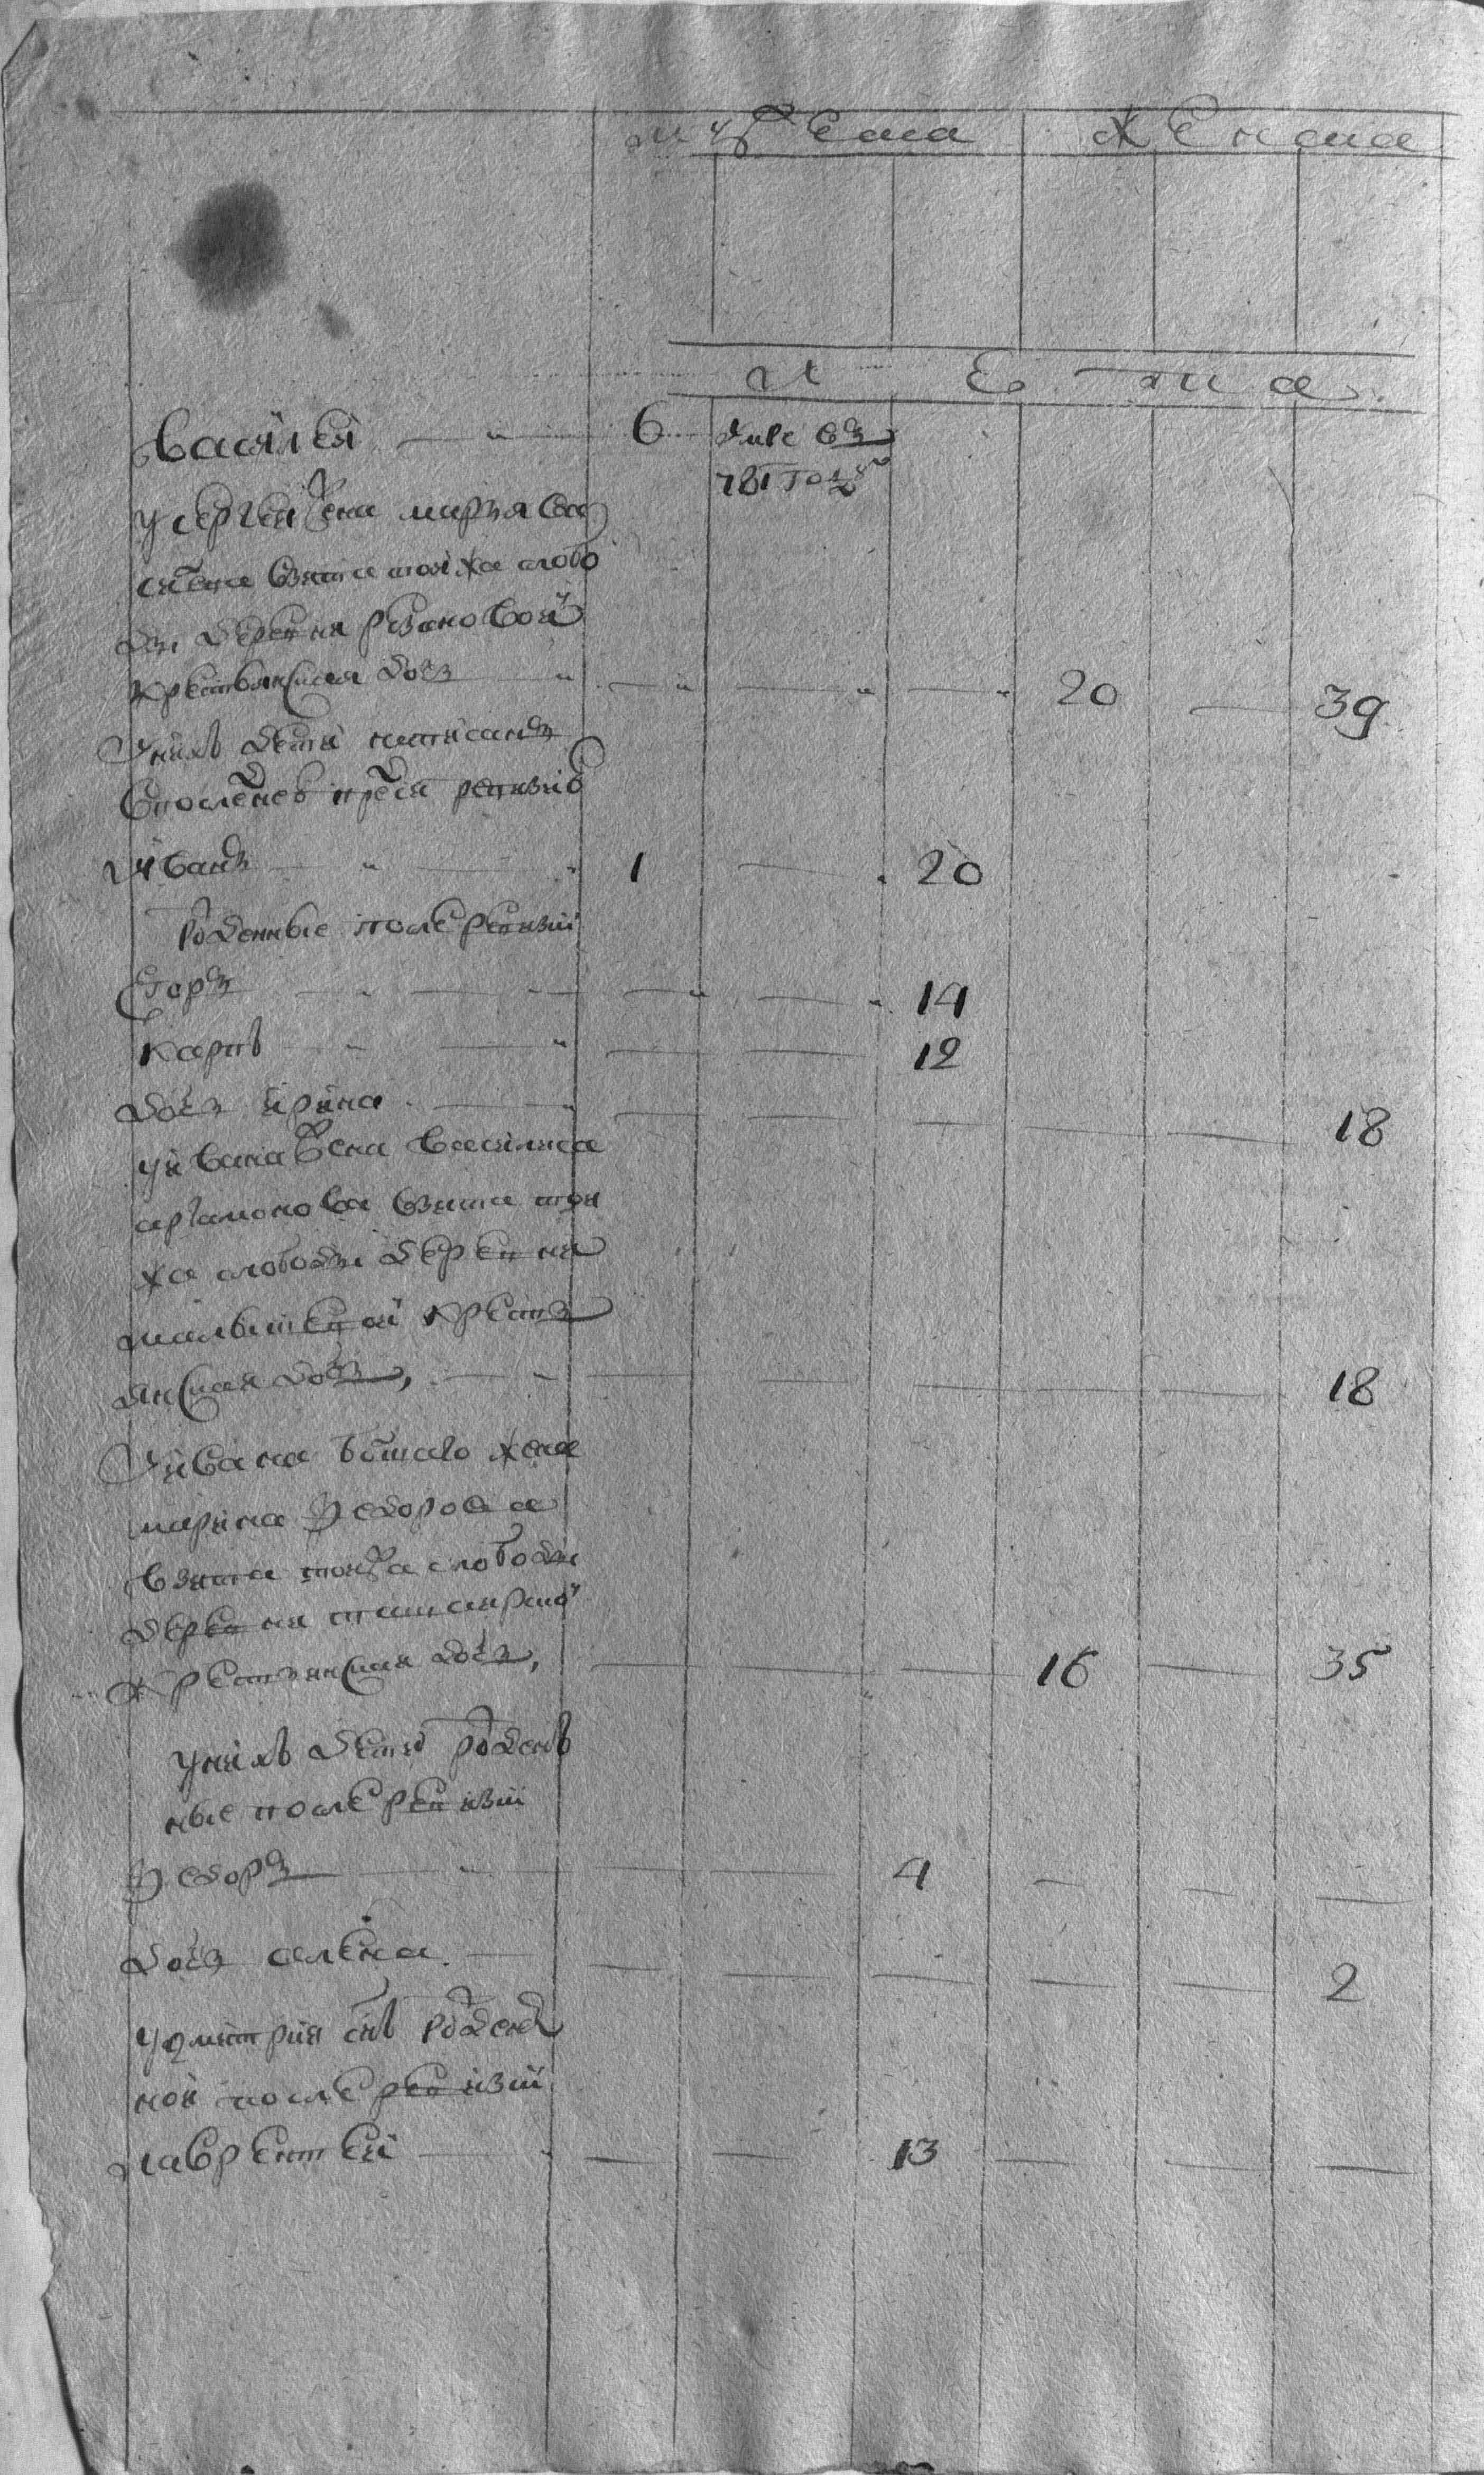 мужеска женска
лета
василей 6
усергея жена марья
взята тояжа слобо
ды деревни резановой
крестьянская дочь 20 39
унихъ дети написаны
впоследней предъ ревизией
иванъ 1 20
рожденные после ревизии
егоръ 14
карпъ 12
дочь ирина 18
уивана жена василиса
артамонова взята тоя
жа слободы деревни
малышевой крестъ
янская дочь, 18
уивана большаго жена
марина федорова
взята тояжа слободы
деревни
крестьянская дочь, 16 35
унихъ дети рожден
ные после ревизии
федоръ 4
дочь алена 2
удмитрия сынъ рожден
ной после ревизии
лаврентей 13